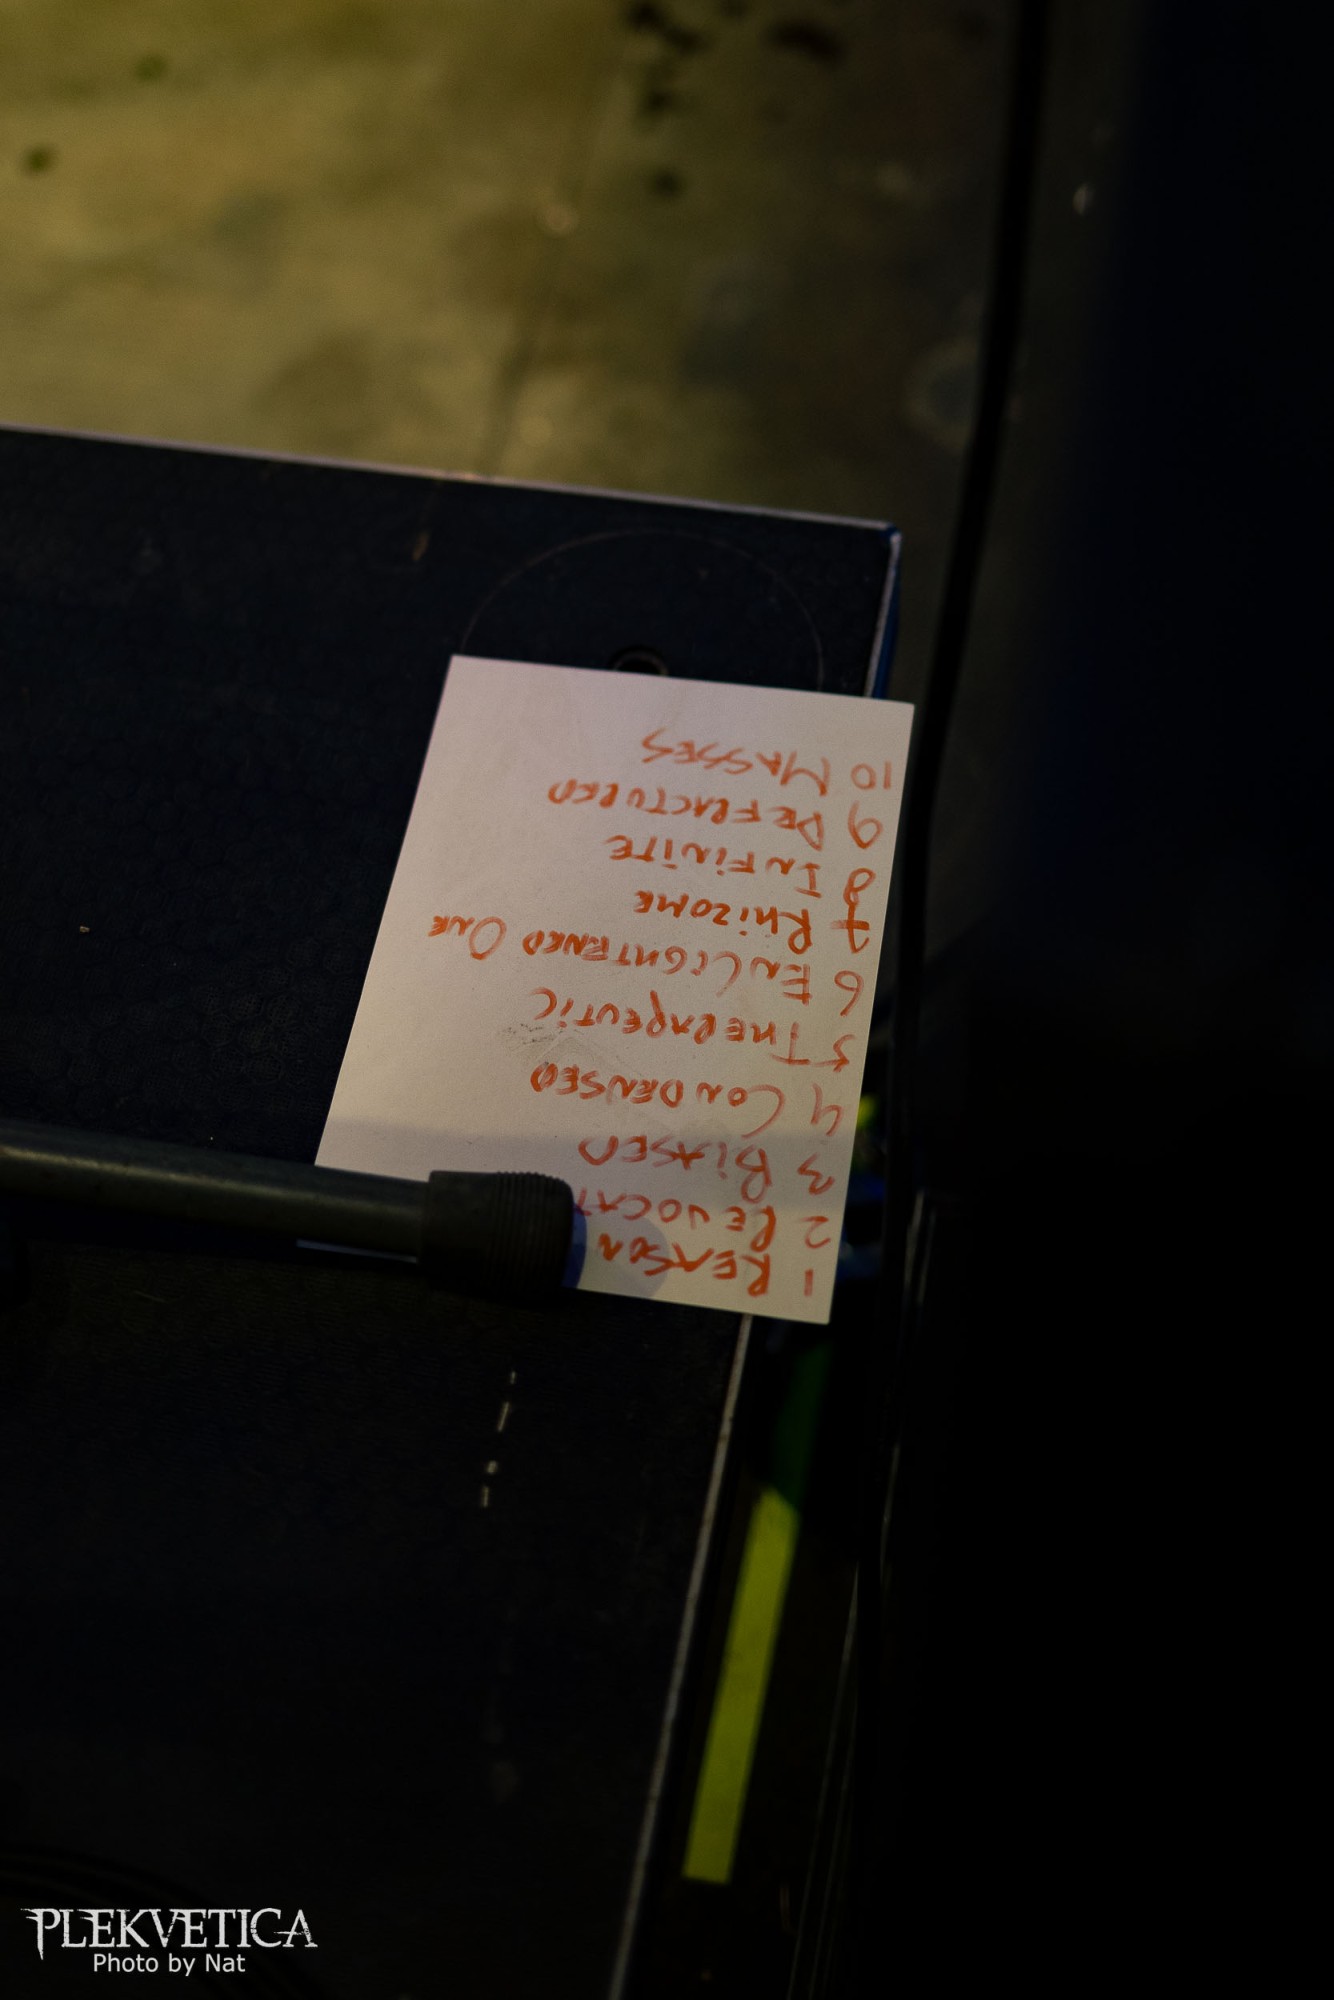 1 REASON
2 REVOCAT
3 BIASED
4 CONDENSED
5 THERAPEUTIC
6 ENLIGHTENED ONE
7 RHIZOME
8 INFINITE
9 DEFRACTURED
10 MASSES
PLEKVETICA
Photo by Nat